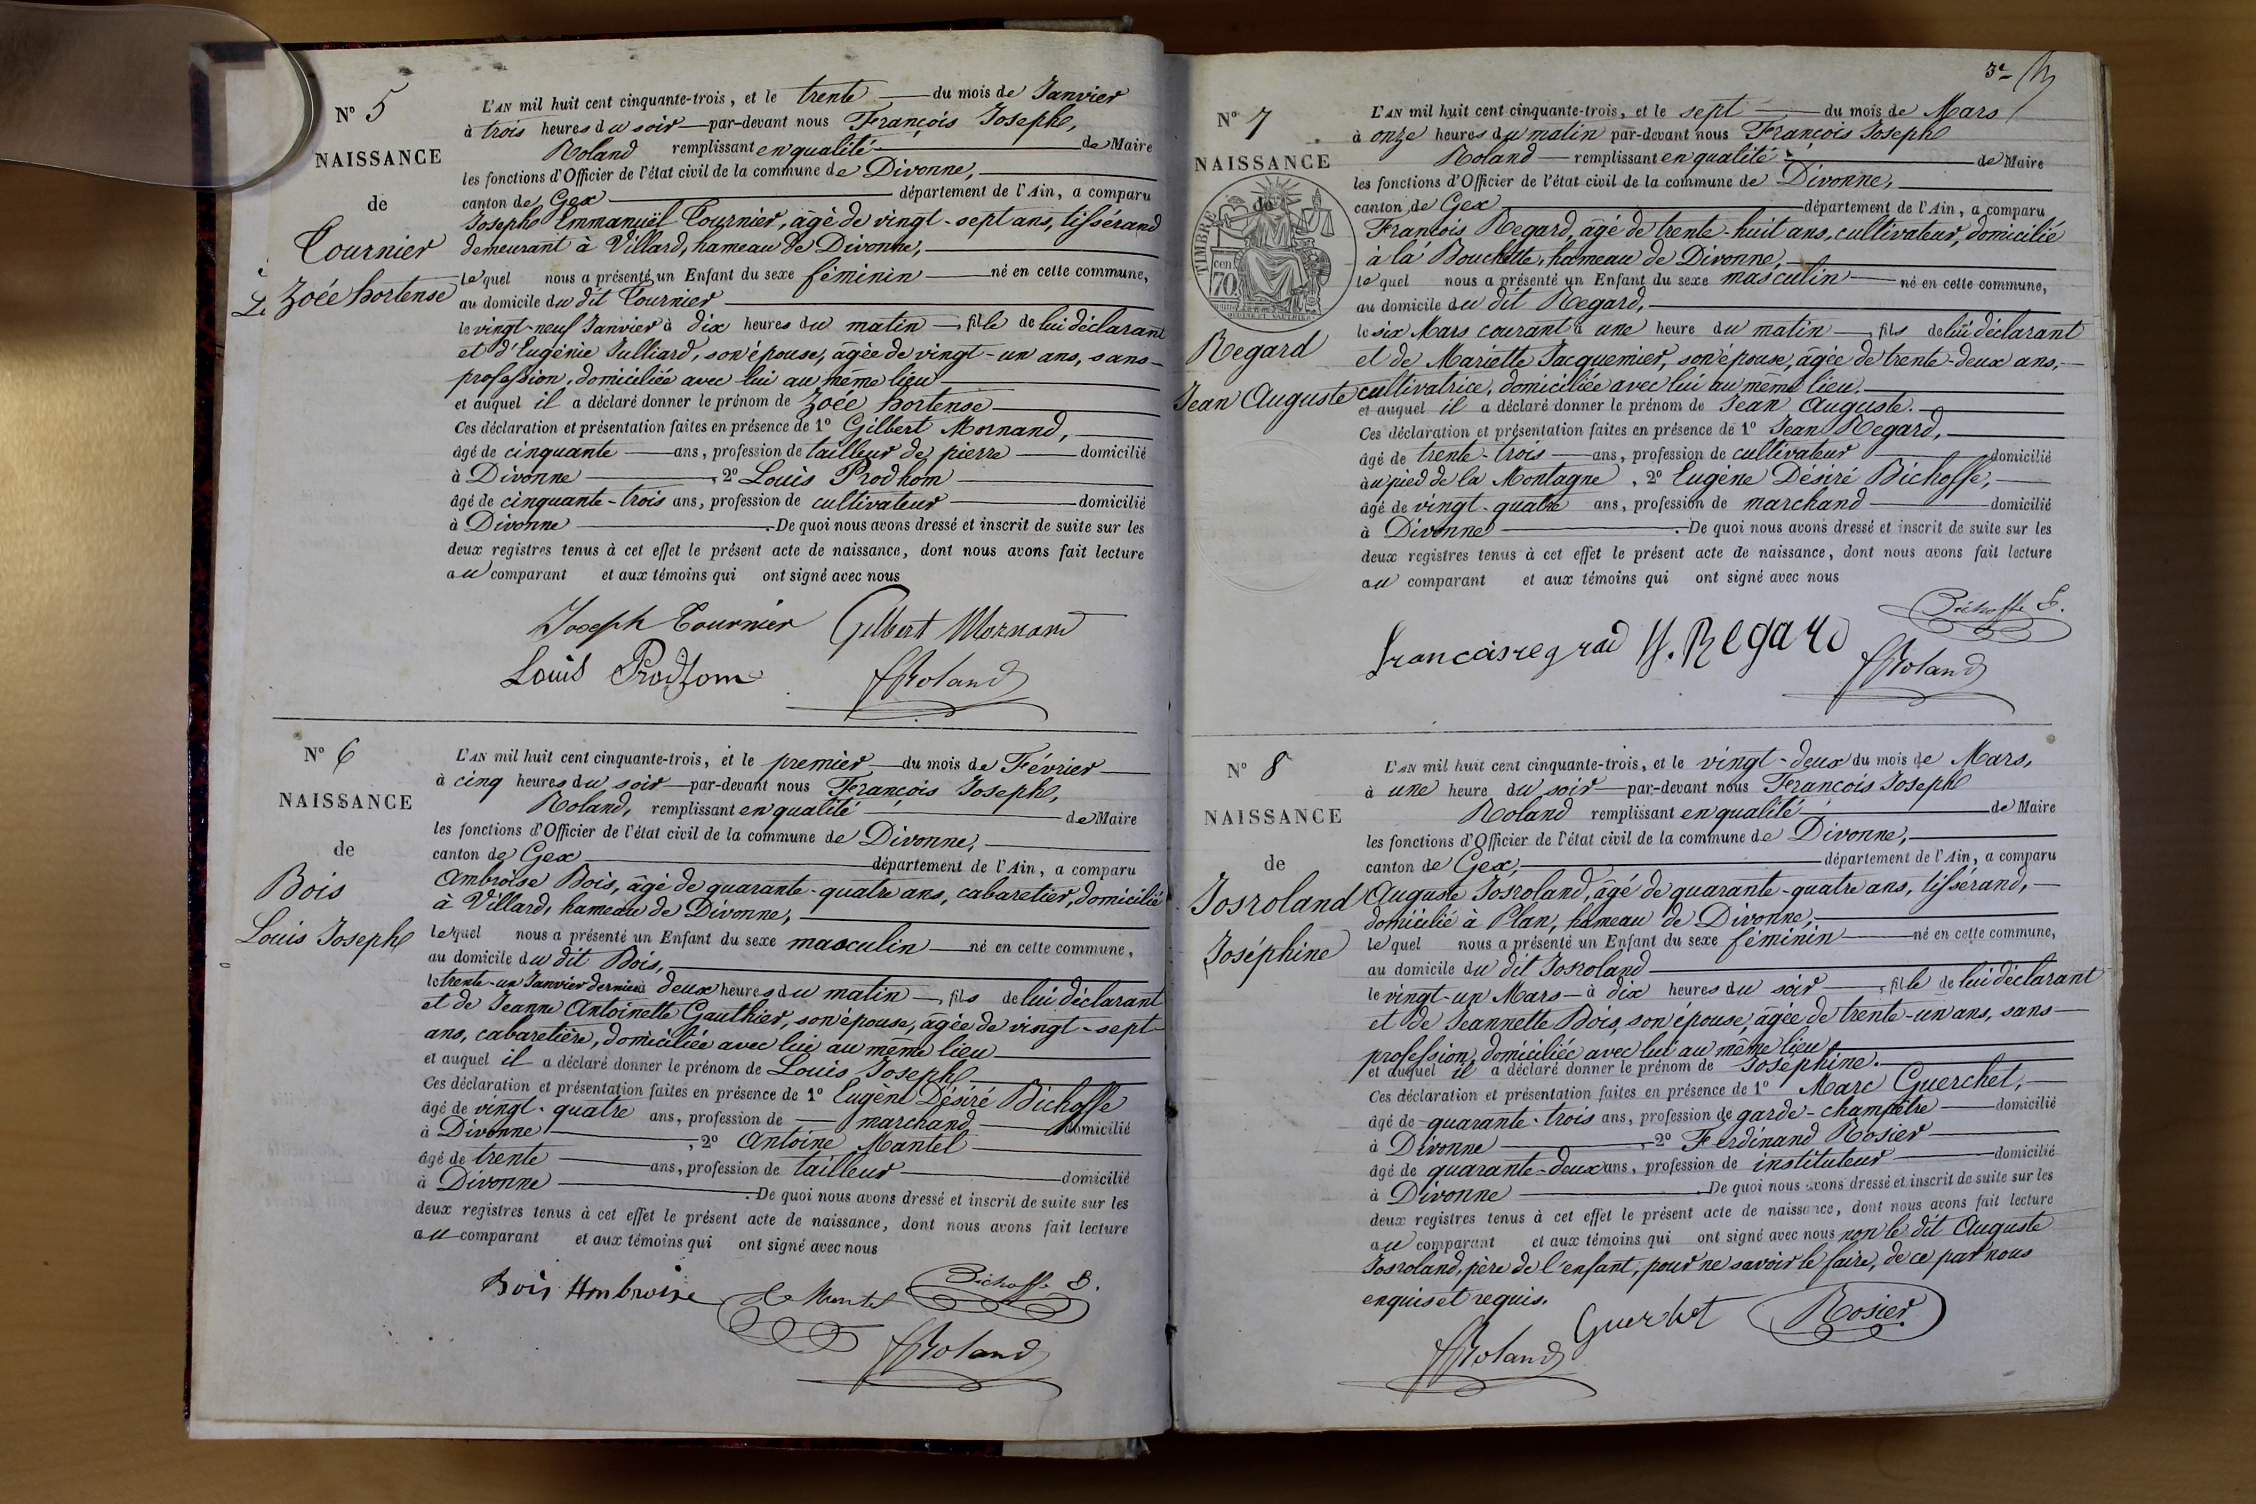 N° 5
NAISSANCE
de
Tournier
Zoée hortense
L'AN mil huit cent cinquante-trois, et le trente du mois de Janvier
à trois heures du soir par-devant nous François Joseph,
Roland remplissant en qualité de Maire
les fonctions d'Officier de l'état civil de la commune de Divonne,
canton de Gex département de l'Ain, a comparu
Joseph Emmanuël Tournier, âgé de vingt-sept ans, tissérand
demeurant à Villard, hameau de Divonne,
lequel nous a présenté un Enfant du sexe féminin né en cette commune,
au domicile du dit Tournier
le vingt-neuf Janvier à dix heures du matin, fille de lui déclarant
et d'Eugénie Julliard, son épouse, âgée de vingt-un ans, sans
profession, domiciliée avec lui au même lieu
et auquel il a déclaré donner le prénom de Zoée hortense
Ces déclaration et présentation faites en présence de 1° Gilbert Mornand,
âgé de cinquante ans, profession de tailleur de pierre domicilié
à Divonne, 2° Louis Prodhom
âgé de cinquante-trois ans, profession de cultivateur domicilié
à Divonne. De quoi nous avons dressé et inscrit de suite sur les
deux registres tenus à cet effet le présent acte de naissance, dont nous avons fait lecture
au comparant et aux témoins qui ont signé avec nous
Joseph Tournier Gilbert Mornand
Louis Prodhom JfRoland
N° 6
NAISSANCE
de
Bois
Louis Joseph
L'AN mil huit cent cinquante-trois, et le premier du mois de Février
à cinq heures du soir par-devant nous François Joseph,
Roland, remplissant en qualité de Maire
les fonctions d'Officier de l'état civil de la commune de Divonne,
canton de Gex département de l'Ain, a comparu
Ambroise Bois, âgé de quarante-quatre ans, cabaretier, domicilié
à Villard, hameau de Divonne,
lequel nous a présenté un Enfant du sexe masculin né en cette commune,
au domicile du dit Bois,
le trente-un Janvier dernier à deux heures du matin, fils de lui déclarant
et de Jeanne Antoinette Gauthier, son épouse, âgée de vingt-sept
ans, cabaretière, domiciliée avec lui au même lieu
et auquel il a déclaré donner le prénom de Louis Joseph
Ces déclaration et présentation faites en présence de 1° Eugène Désiré Bichoffe
âgé de vingt-quatre ans, profession de marchand domicilié
à Divonne, 2° Antoine Mantel
âgé de trente ans, profession de tailleur domicilié
à Divonne. De quoi nous avons dressé et inscrit de suite sur les
deux registres tenus à cet effet le présent acte de naissance, dont nous avons fait lecture
au comparant et aux témoins qui ont signé avec nous
Bois Ambroise Mantel Bichoffe E.
JfRoland
3e
N° 7
NAISSANCE
de
TIMBRE
70 cen
Regard
Jean Auguste
L'AN mil huit cent cinquante-trois, et le sept du mois de Mars
à onze heures du matin par-devant nous François Joseph
Roland remplissant en qualité de Maire
les fonctions d'Officier de l'état civil de la commune de Divonne,
canton de Gex département de l'Ain, a comparu
François Regard, âgé de trente-huit ans, cultivateur, domicilié
à la Bouchette, hameau de Divonne,
lequel nous a présenté un Enfant du sexe masculin né en cette commune,
au domicile du dit Regard,
le six Mars courant à une heure du matin, fils de lui déclarant
et de Mariette Jacquemier, son épouse, âgée de trente-deux ans,
cultivatrice, domiciliée avec lui au même lieu.
et auquel il a déclaré donner le prénom de Jean Auguste.
Ces déclaration et présentation faites en présence de 1° Jean Regard,
âgé de trente-trois ans, profession de cultivateur domicilié
au pied de la Montagne, 2° Eugène Désiré Bichoffe,
âgé de vingt-quatre ans, profession de marchand domicilié
à Divonne. De quoi nous avons dressé et inscrit de suite sur les
deux registres tenus à cet effet le présent acte de naissance, dont nous avons fait lecture
au comparant et aux témoins qui ont signé avec nous
Bichoffe E.
francoisregrad J. Regard
JfRoland
N° 8
NAISSANCE
de
Josroland
Joséphine
L'AN mil huit cent cinquante-trois, et le vingt-deux du mois de Mars,
à une heure du soir par-devant nous François Joseph
Roland remplissant en qualité de Maire
les fonctions d'Officier de l'état civil de la commune de Divonne,
canton de Gex, département de l'Ain, a comparu
Auguste Josroland, âgé de quarante-quatre ans, tissérand,
domicilié à Plan, hameau de Divonne,
lequel nous a présenté un Enfant du sexe féminin né en cette commune,
au domicile du dit Josroland
le vingt-un Mars à dix heures du soir, fille de lui déclarant
et de Jeannette Bois, son épouse, âgée de trente-un ans, sans
profession, domiciliée avec lui au même lieu
et auquel il a déclaré donner le prénom de Joséphine.
Ces déclaration et présentation faites en présence de 1° Marc Guerchet,
âgé de quarante-trois ans, profession de garde-champêtre domicilié
à Divonne, 2° Ferdinand Rosier
âgé de quarante-deux ans, profession de instituteur domicilié
à Divonne. De quoi nous avons dressé et inscrit de suite sur les
deux registres tenus à cet effet le présent acte de naissance, dont nous avons fait lecture
au comparant et aux témoins qui ont signé avec nous non le dit Auguste
Josroland, père de l'enfant, pour ne savoir le faire, de ce par nous
enquis et requis.
Guerchet Rosier
JfRoland